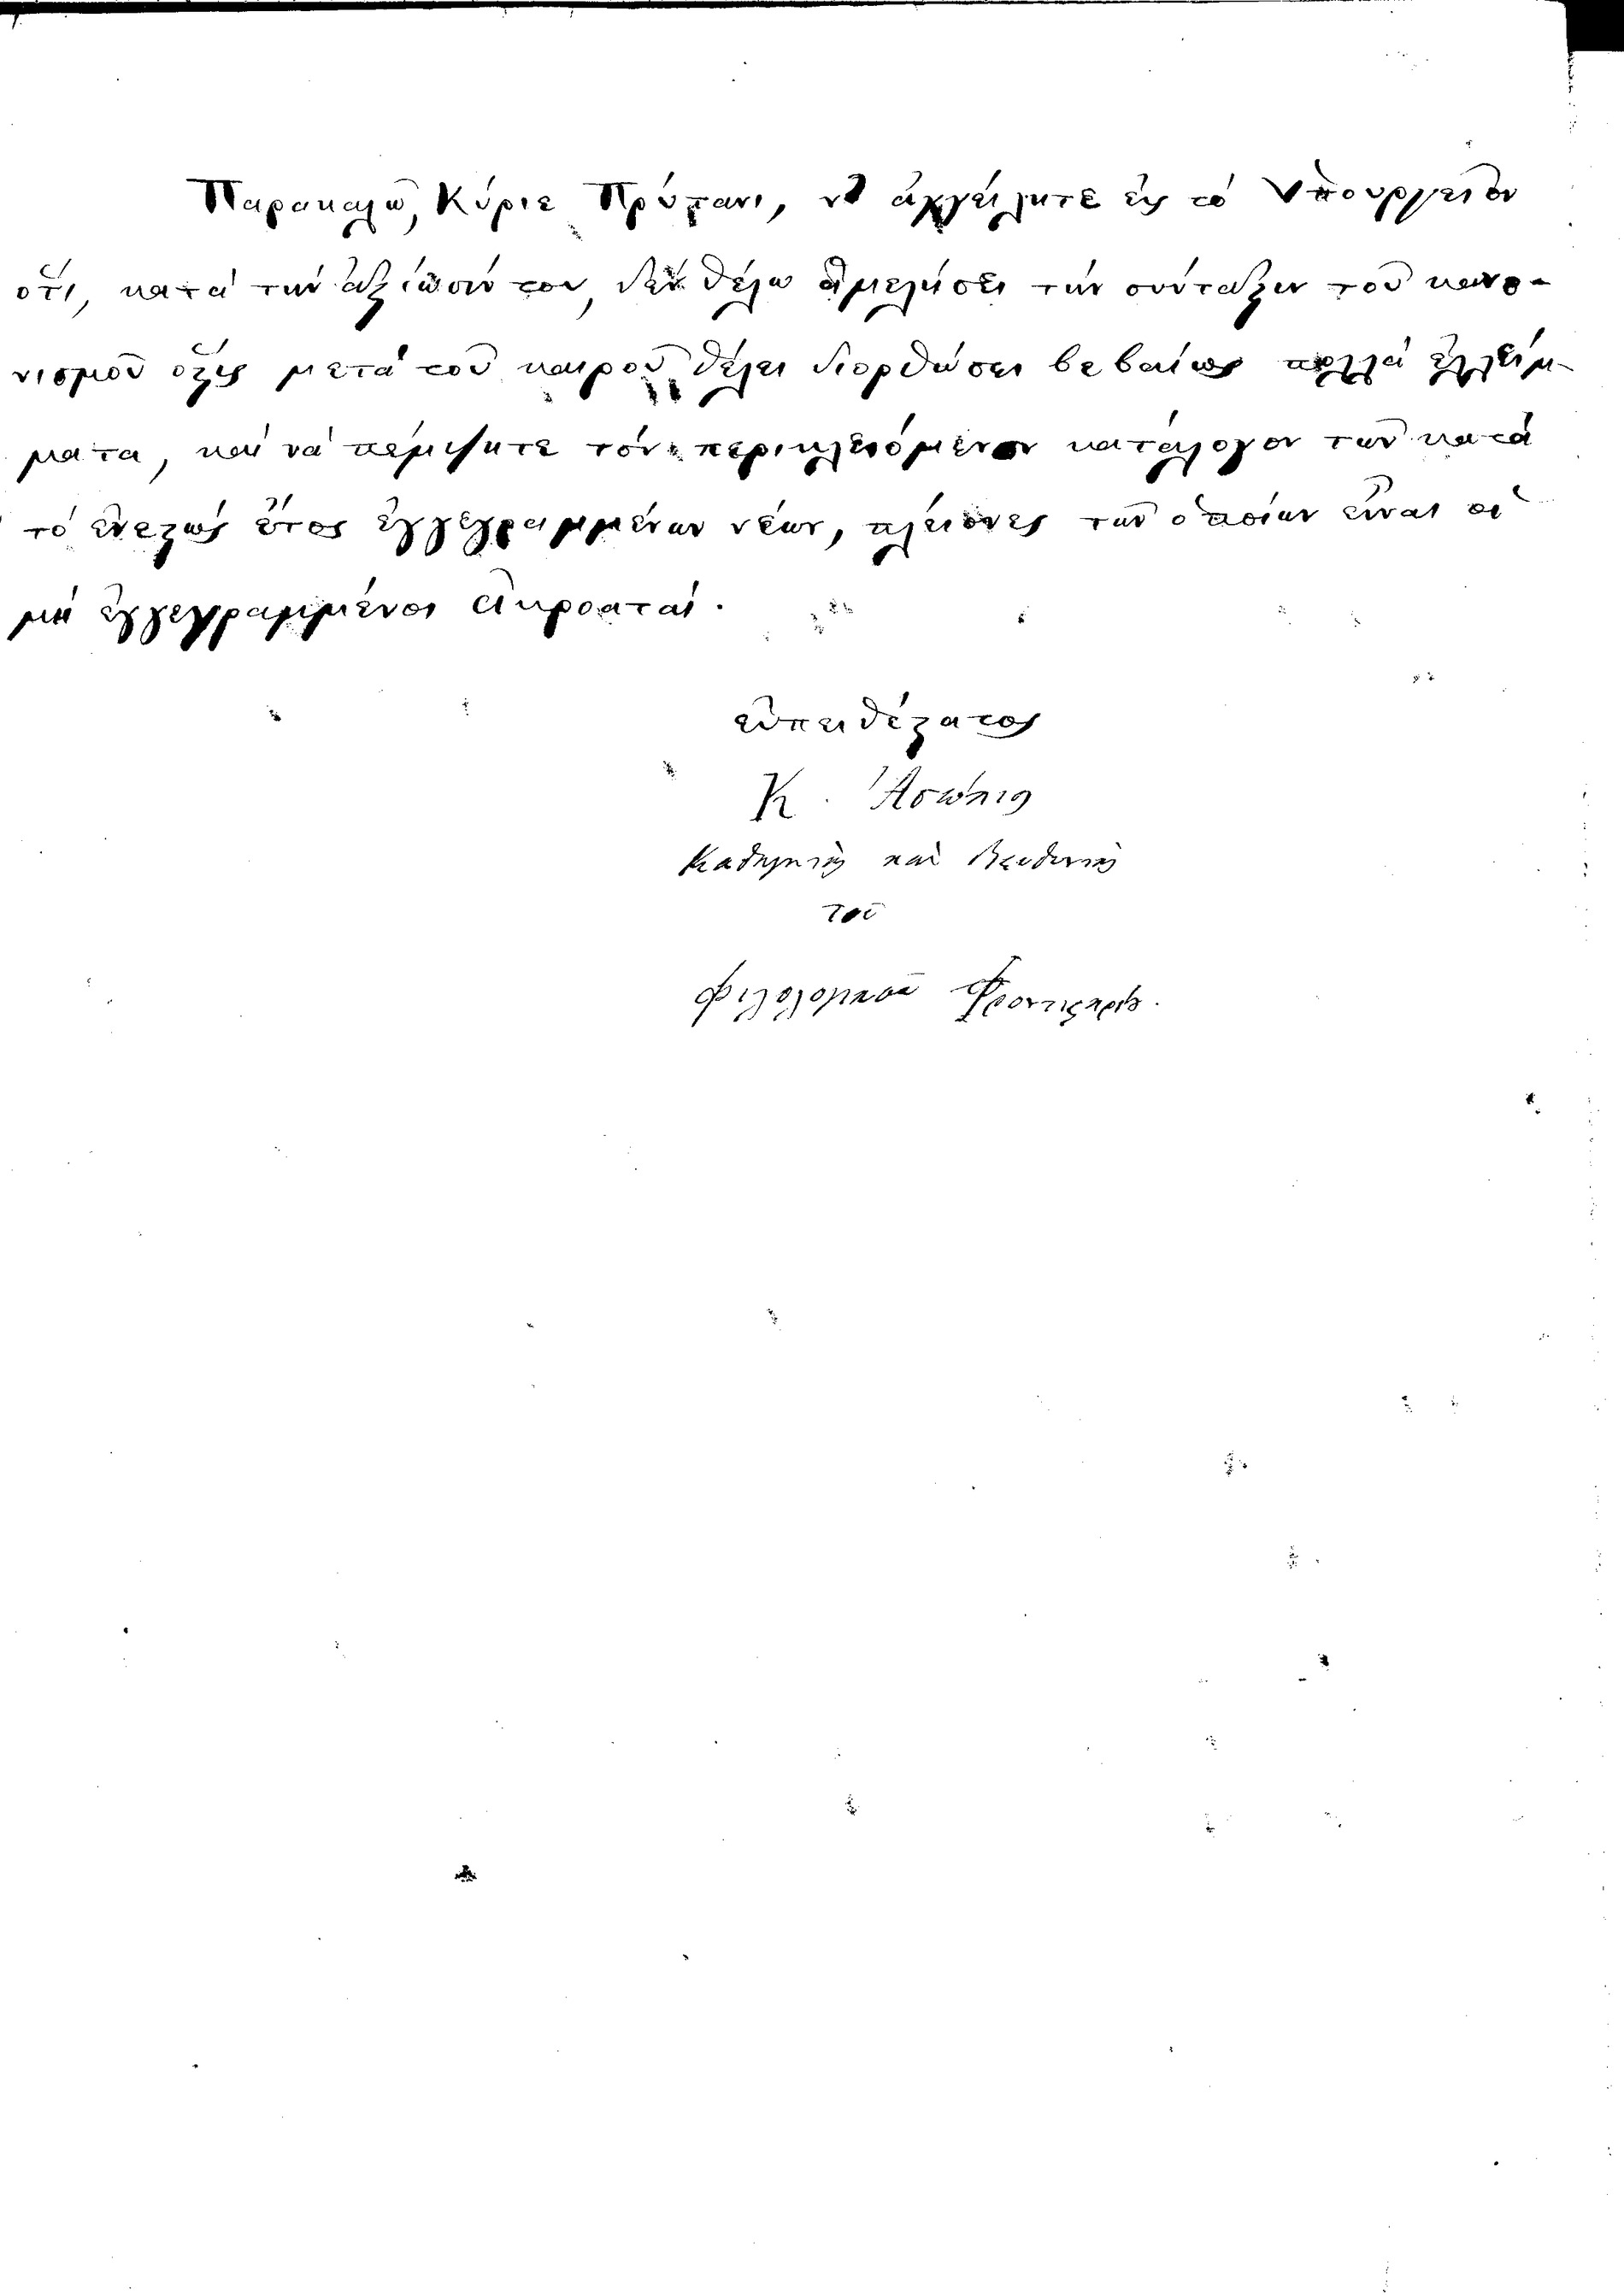 Παρακαλῶ, Κύριε Πρύτανι, νὰ ἀγγείλητε εἰς τὸ Ὑπουργεῖον
ὅτι, κατὰ τὴν ἀξίωσίν του, δὲν θέλω ἀμελήσει τὴν σύνταξιν τοῦ κανο-
νισμοῦ ὅςις μετὰ τοῦ καιροῦ θέλει διορθώσει βεβαίως πολλὰ ἐλλείμ-
ματα, καὶ νὰ πέμψητε τὸν περικλειόμενον κατάλογον τῶν κατὰ
τὸ ἐνεςὼς ἔτος ἐγγεγραμμένων νέων, πλείονες τῶν ὁποίων εἶναι οἱ
μὴ ἐγγεγραμμένοι ἀκροαταί.
εὐπειθέςατος
Κ. Ἀσώπιος
Καθηγητὴς καὶ Διευθυντὴς
τοῦ
Φιλολογικοῦ Φροντιςηρίου.